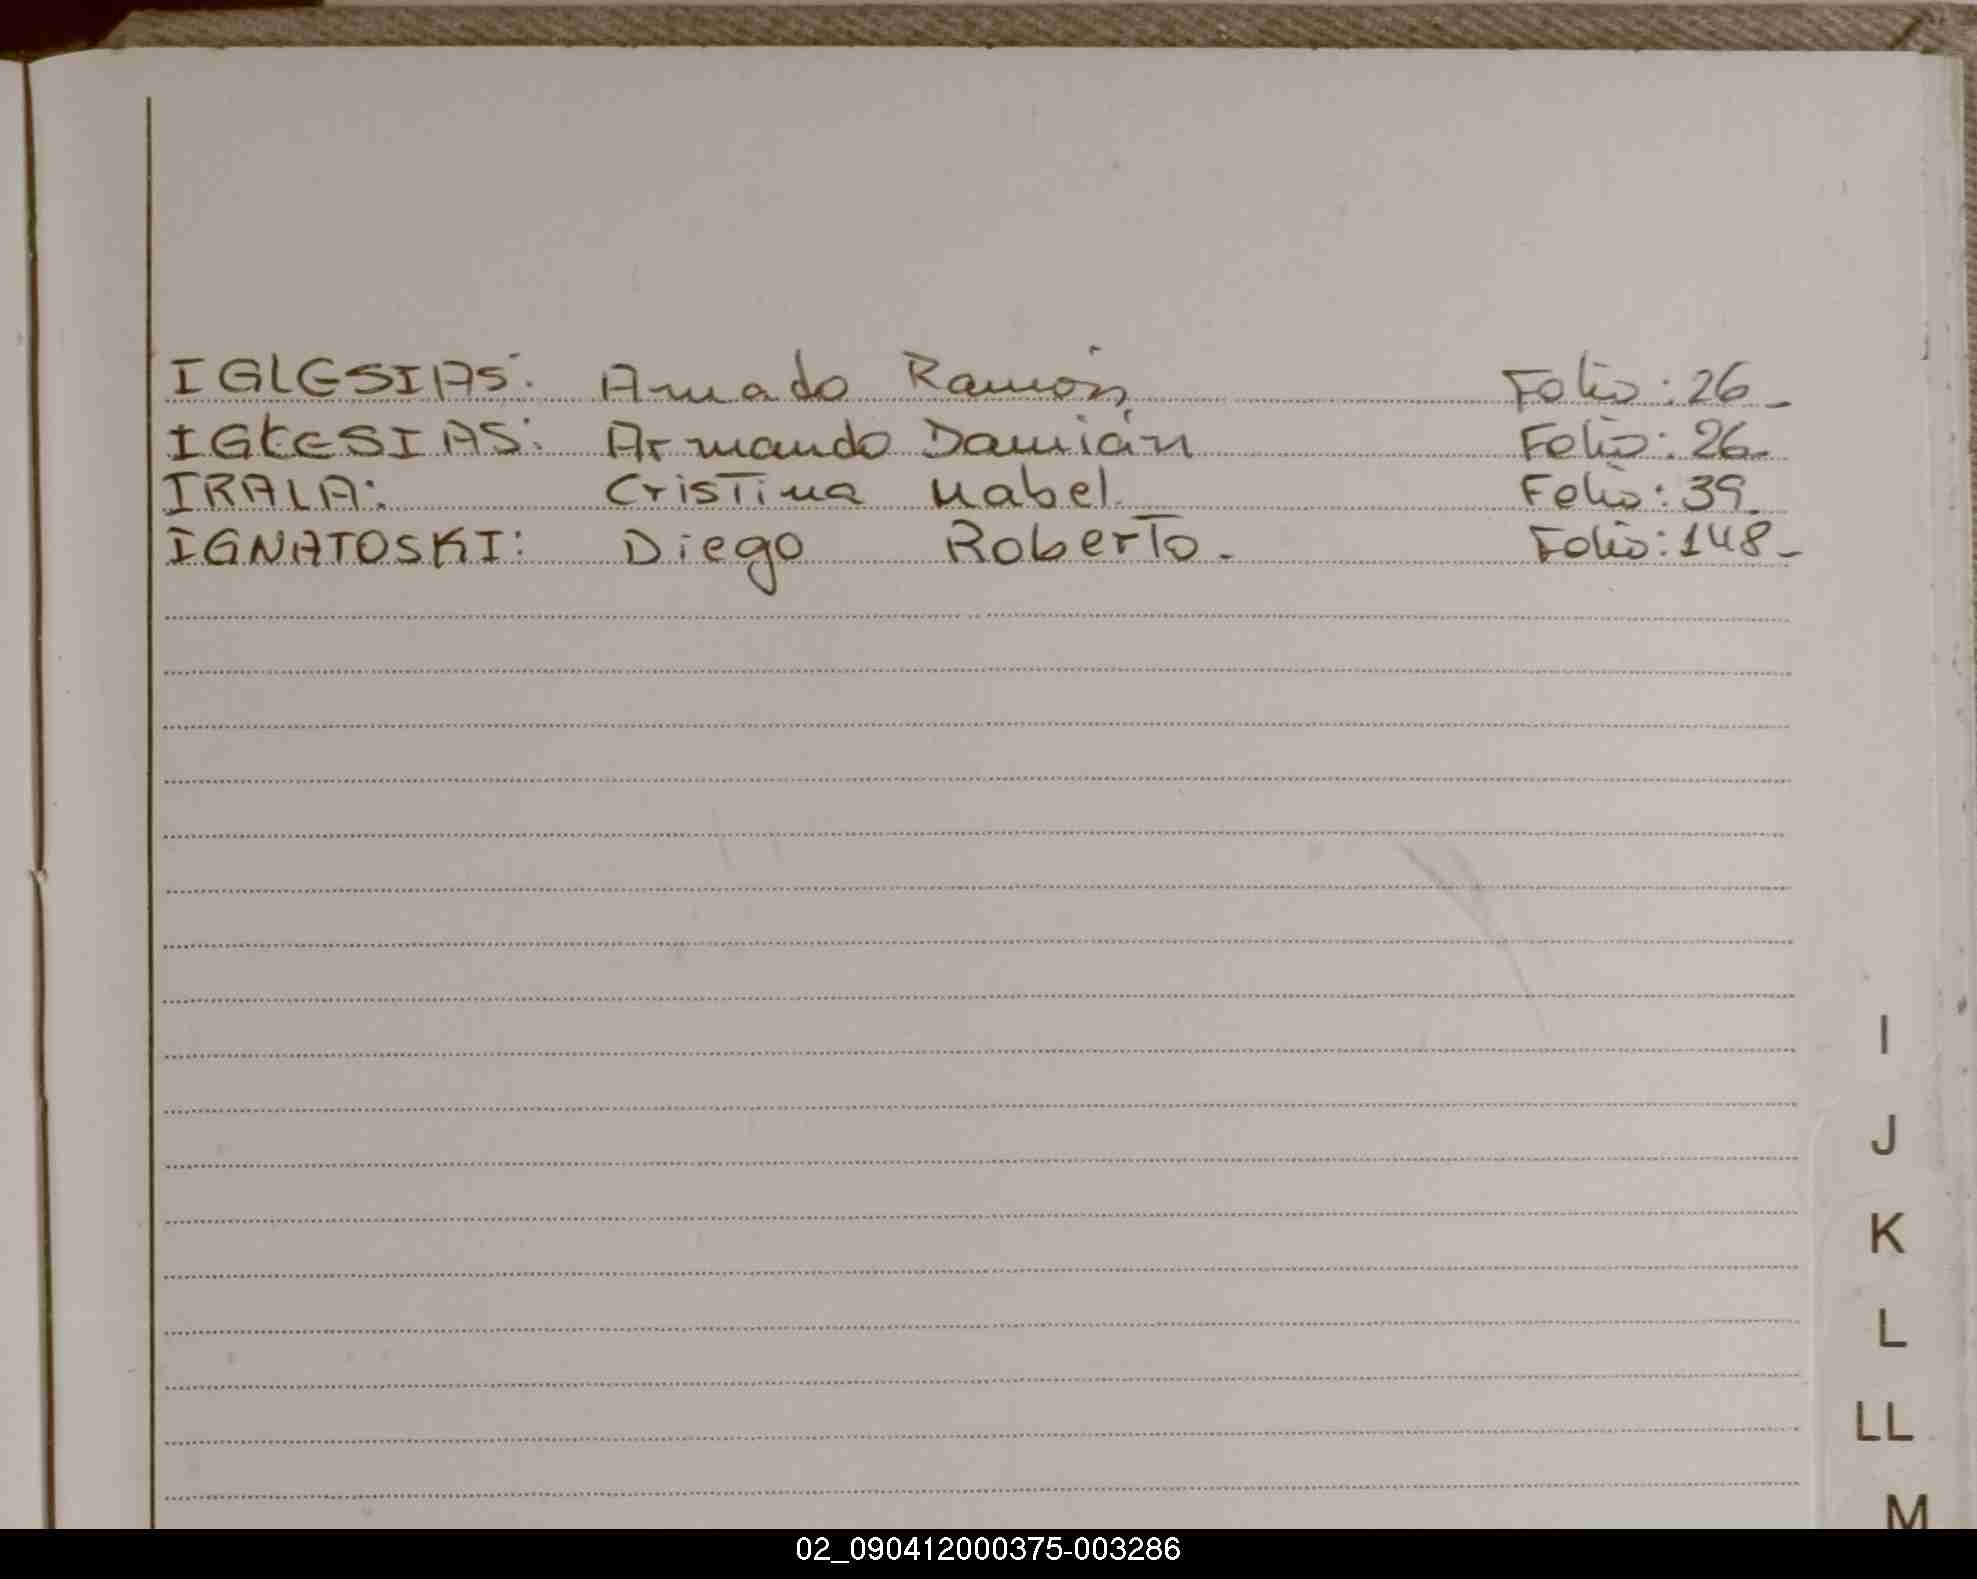 IGLESIAS: Amado Ramón Folio: 26_
IGLESIAS: Armando Damián Folio: 26_
IRALA: Cristina Mabel. Folio: 39_
IGNATOSKI: Diego Roberto. Folio: 148_
I
J
K
L
LL
M
02_090412000375-003286